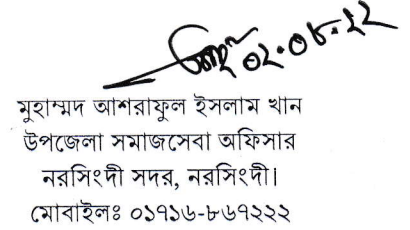 ০২.০৮.২২
মুহাম্মদ আশরাফুল ইসলাম খান
উপজেলা সমাজসেবা অফিসার
নরসিংদী সদর, নরসিংদী।
মোবাইলঃ ০১৭১৬-৮৬৭২২২